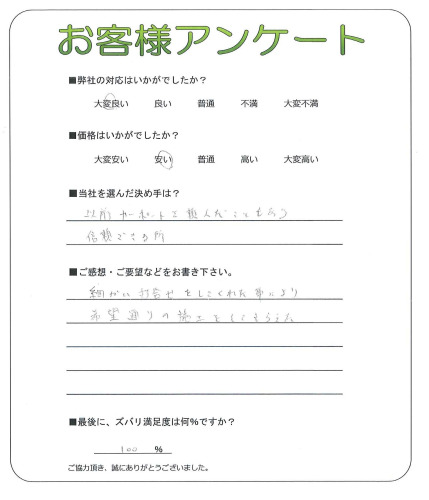 お客様アンケート
■弊社の対応はいかがでしたか？
大変良い 良い 普通 不満 大変不満
■価格はいかがでしたか？
大変安い 安い 普通 高い 大変高い
■当社を選んだ決め手は？
以前カーポートを頼んだこともあり
信頼できる所
■ご感想・ご要望などをお書き下さい。
細かい打合せをしてくれた事により
希望通りの施工をしてもらえた
■最後に、ズバリ満足度は何％ですか？
100 ％
ご協力頂き、誠にありがとうございました。